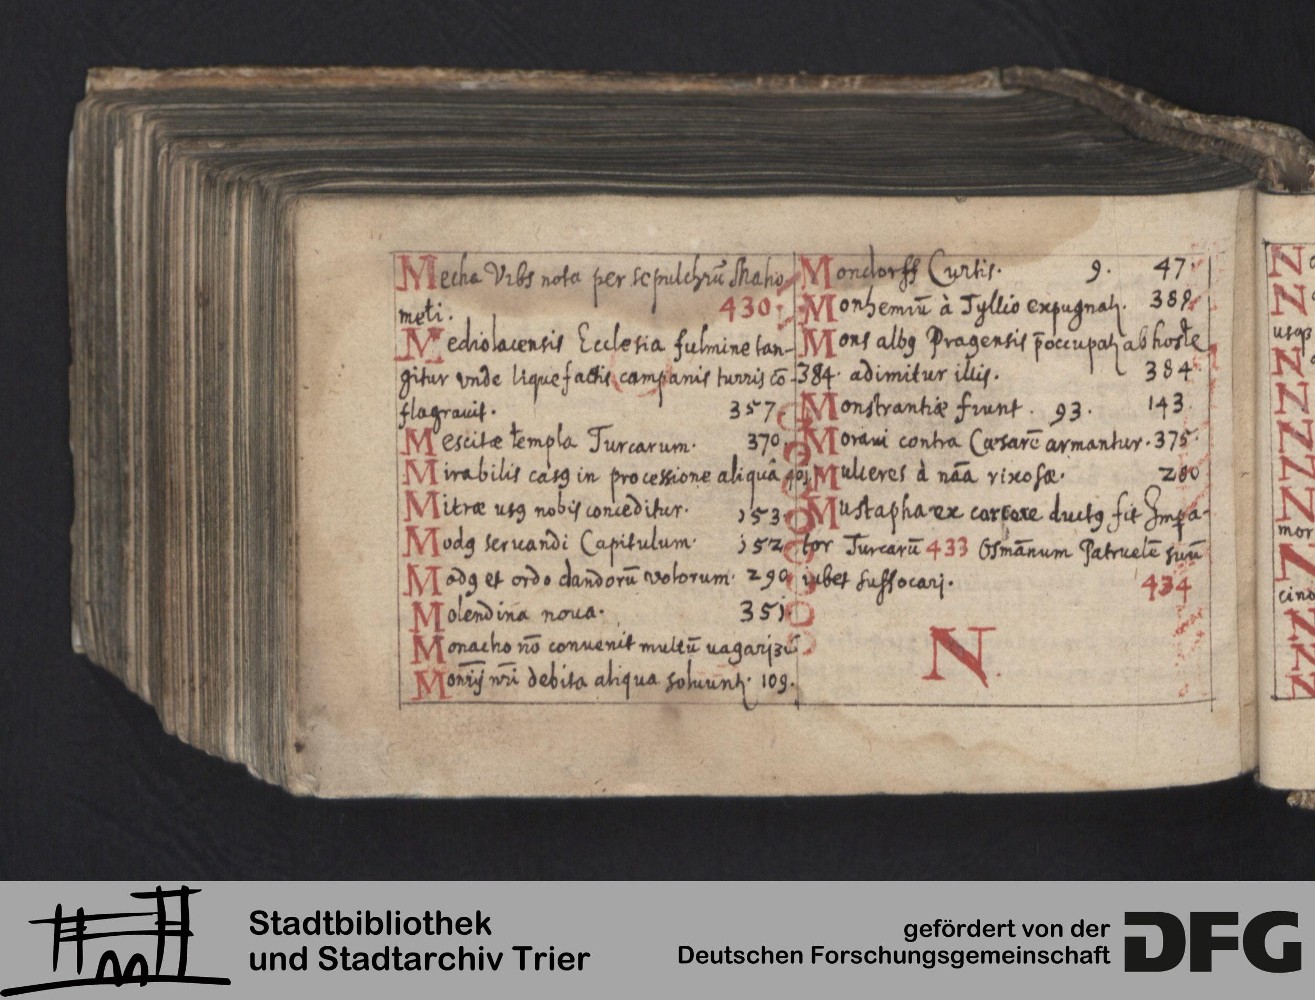 Mecha Vrbs nota per sepulchrū Maho
meti. 430.
Mediolacensis Ecclesia fulmine tan-
gitur vnde liquefactis campanis turris cō-
flagrauit. 357.
Mescitæ templa Turcarum. 370.
Mirabilis casꝰ in processione aliquâ
Mitræ usꝰ nobis conceditur. 153.
Modꝰ seruandi Capitulum. 152
Modꝰ et ordo dandorū votorum. 290
Molendina noua. 351.
Monacho nō conuenit multū uagari
Monrÿ nr̄i debita aliqua soluunt. 109.
Mondorff Curtis. 9. 47.
Monhemiū à Tyllio expugnat. 388.
Mons albꝰ Pragensis p̄occupat ab hoste
384. adimitur illis. 384
Monstrantiæ fiunt. 93. 143
Moraui contra Cæsarē armantur. 375.
Mulieres à nāa rixosæ. 280
Mustapha ex carcere ductꝰ fit Impa-
tor Turcarū 433 Osmānum Patruelē suū
iubet suffocarj. 434
N.
N
N
usqꝫ
N
N
N
N
N
mor
N
cino
N
N
Stadtbibliothek
und Stadtarchiv Trier
gefördert von der
Deutschen Forschungsgemeinschaft
DFG